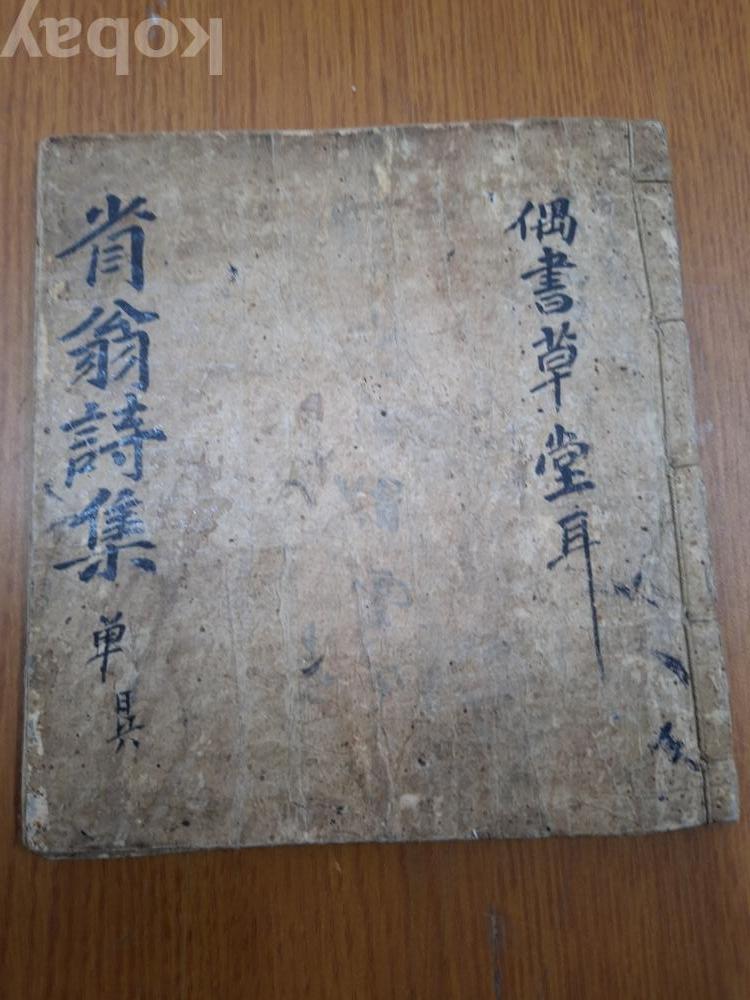 kobay
偶書草堂耳
省翁詩集 单